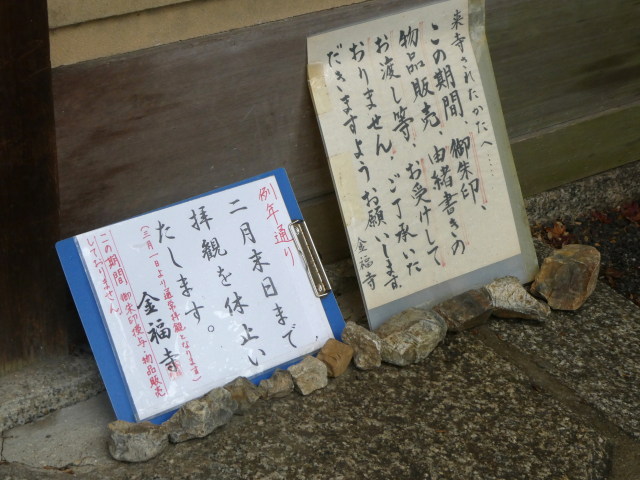 来寺されたかたへ……
この期間、御朱印、
物品販売、由緒書きの
お渡し等、お受けして
おりません。ご了承いた
だきますようお願いします。
金福寺
例年通り
二月末日まで
拝観を休止い
たします。
(三月一日より通常拝観となります)
金福寺
この期間 御朱印授与・物品販売
しておりません